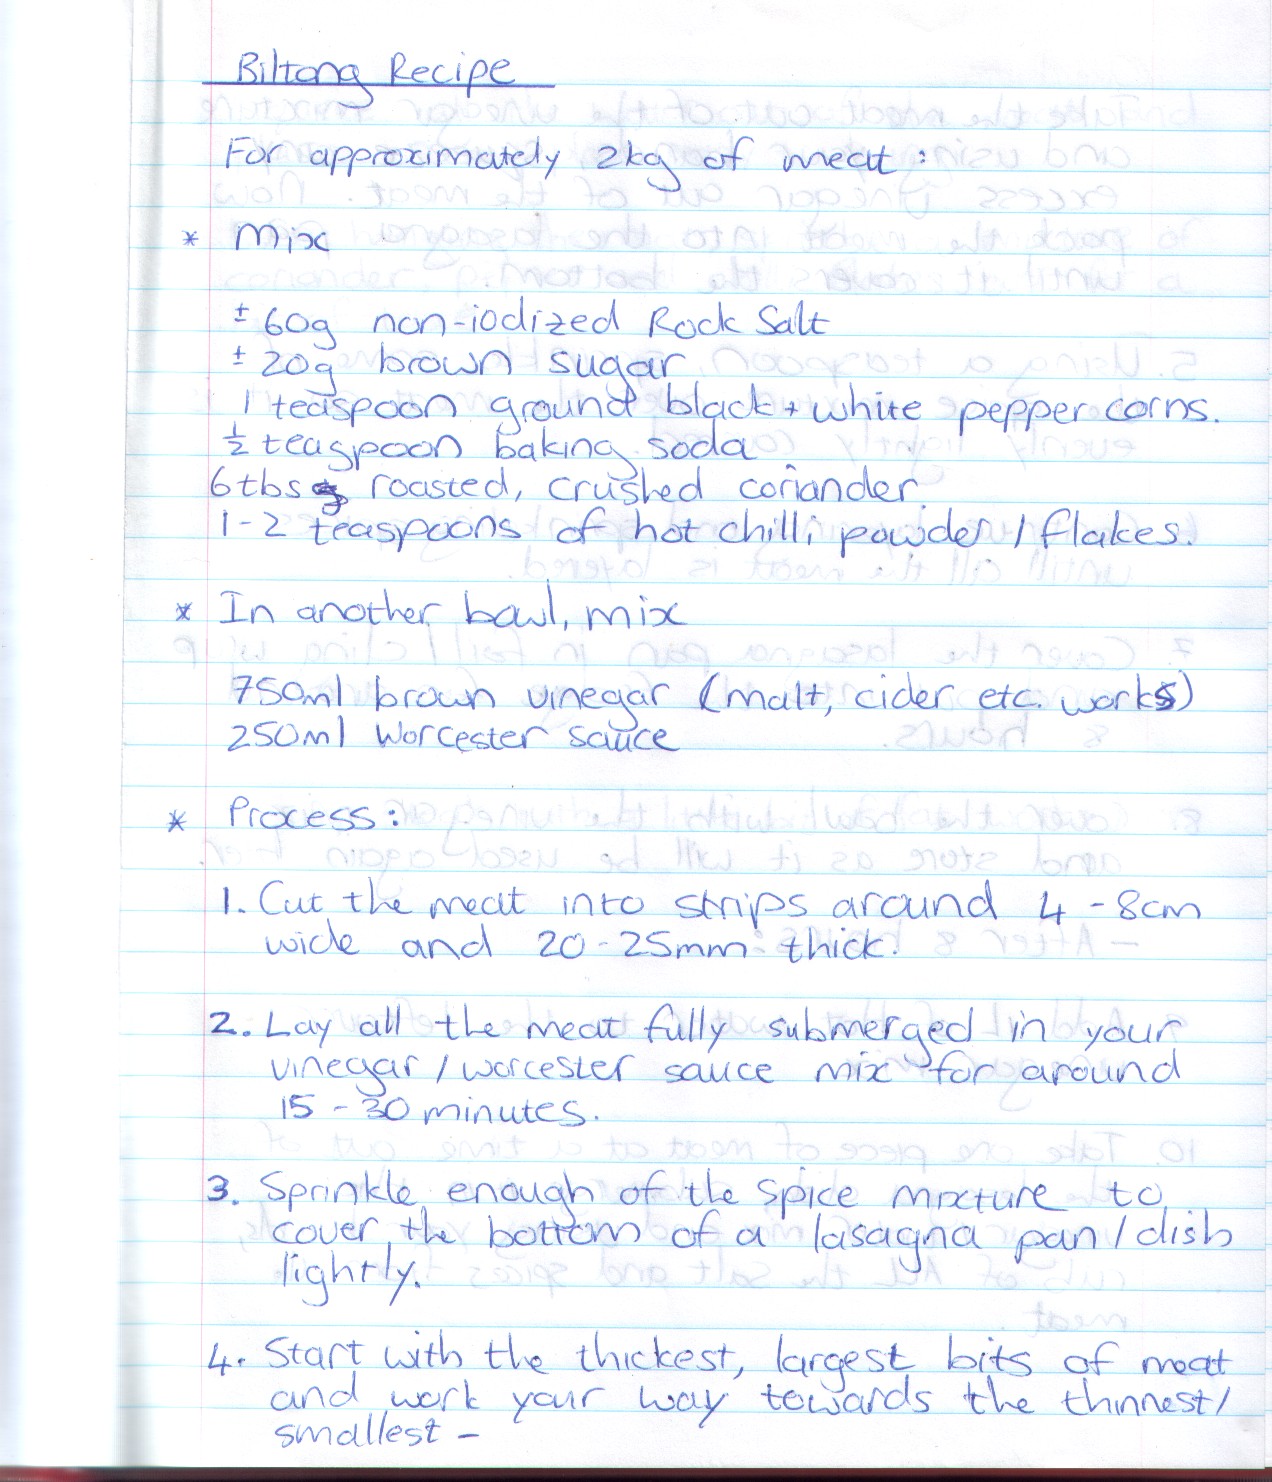 Biltong Recipe
For approximately 2kg of meat:
* Mix
± 60g non-iodized Rock Salt
± 20g brown sugar
1 teaspoon ground black + white pepper corns.
½ teaspoon baking soda
6tbs roasted, crushed coriander
1-2 teaspoons of hot chilli powder / flakes.
* In another bowl, mix
750ml brown vinegar (malt, cider etc. works)
250ml Worcester sauce
* Process:
1. Cut the meat into strips around 4 - 8cm
wide and 20-25mm thick.
2. Lay all the meat fully submerged in your
vinegar / worcester sauce mix for around
15 - 30 minutes.
3. Sprinkle enough of the spice mixture to
cover the bottom of a lasagna pan / dish
lightly.
4. Start with the thickest, largest bits of meat
and work your way towards the thinnest/
smallest -